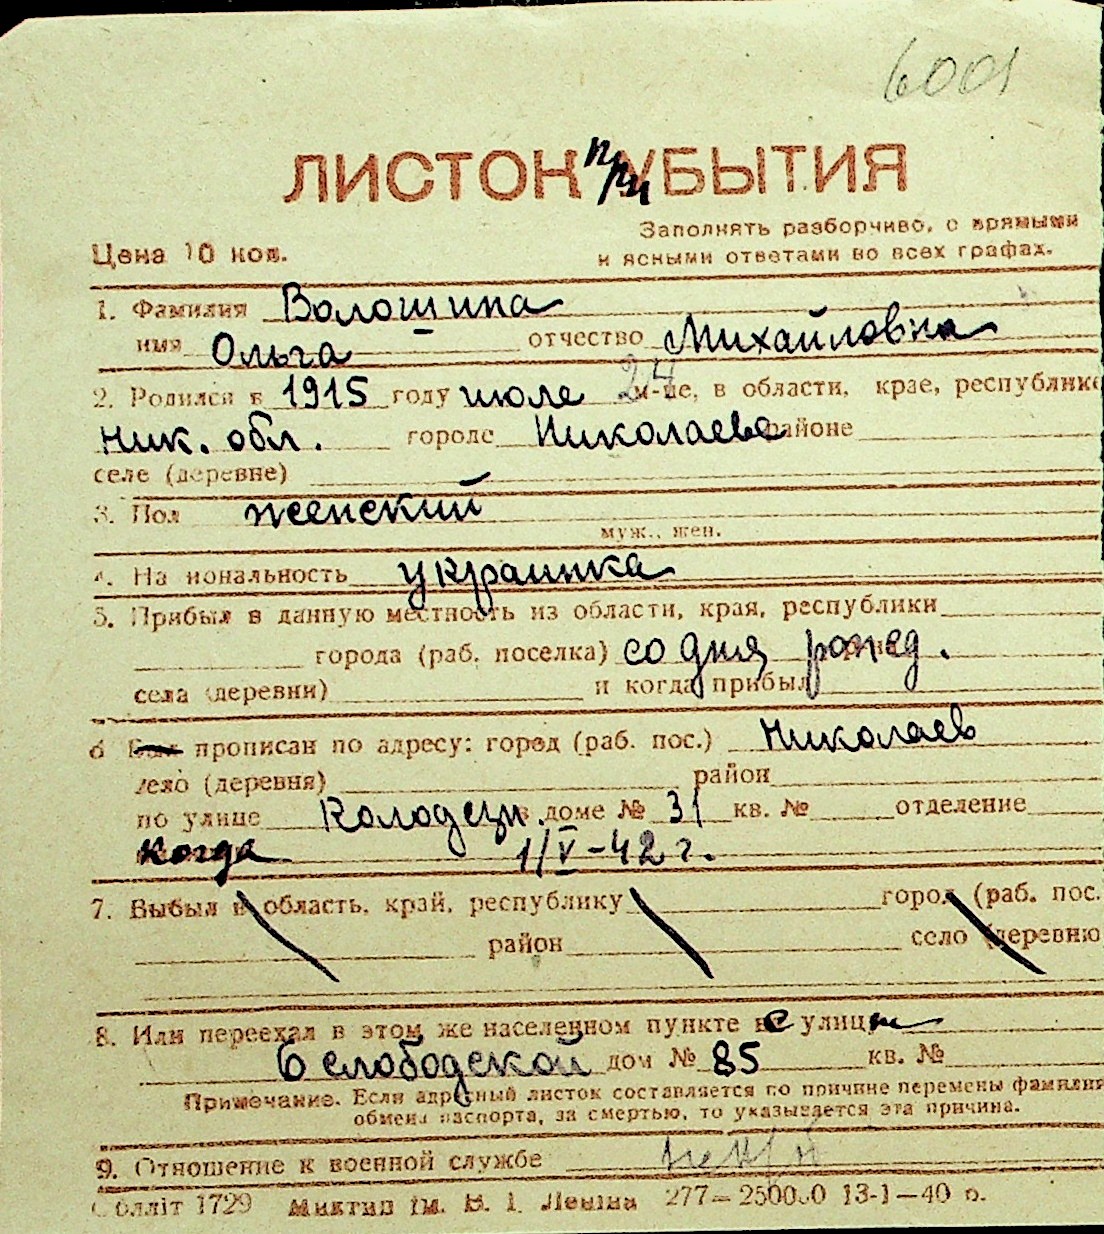 6001
ЛИСТОК при УБЫТИЯ
Заполнять разборчиво, с прямыми
Цена 10 коп. и ясными ответами во всех графах.
1. Фамилия Волошина
имя Ольга отчество Михайловна
2. Родился в 1915 году июле 24 м-це, в области, крае, республике
Ник. обл. городе Николаеве районе
селе (деревне)
3. Пол женский
муж., жен.
4. Национальность украинка
5. Прибыл в данную местность из области, края, республики
города (раб. поселка) со дня рожд.
села (деревни) и когда прибыл
6 Был прописан по адресу: город (раб. пос.) Николаев
село (деревня) район
по улице Колодезн. в доме № 31 кв. № отделение
когда 1/V-42 г.
7. Выбыл в область, край, республику город (раб. пос.
район село (деревню
8. Или переехал в этом же населенном пункте с улицы
6 слободской дом № 85 кв. №
Примечание. Если адресный листок составляется по причине перемены фамилии
обмена паспорта, за смертью, то указывается эта причина.
9. Отношение к военной службе
Облліт 1729 Миктип ім. В. І. Леніна 277—250000 13-1—40 р.